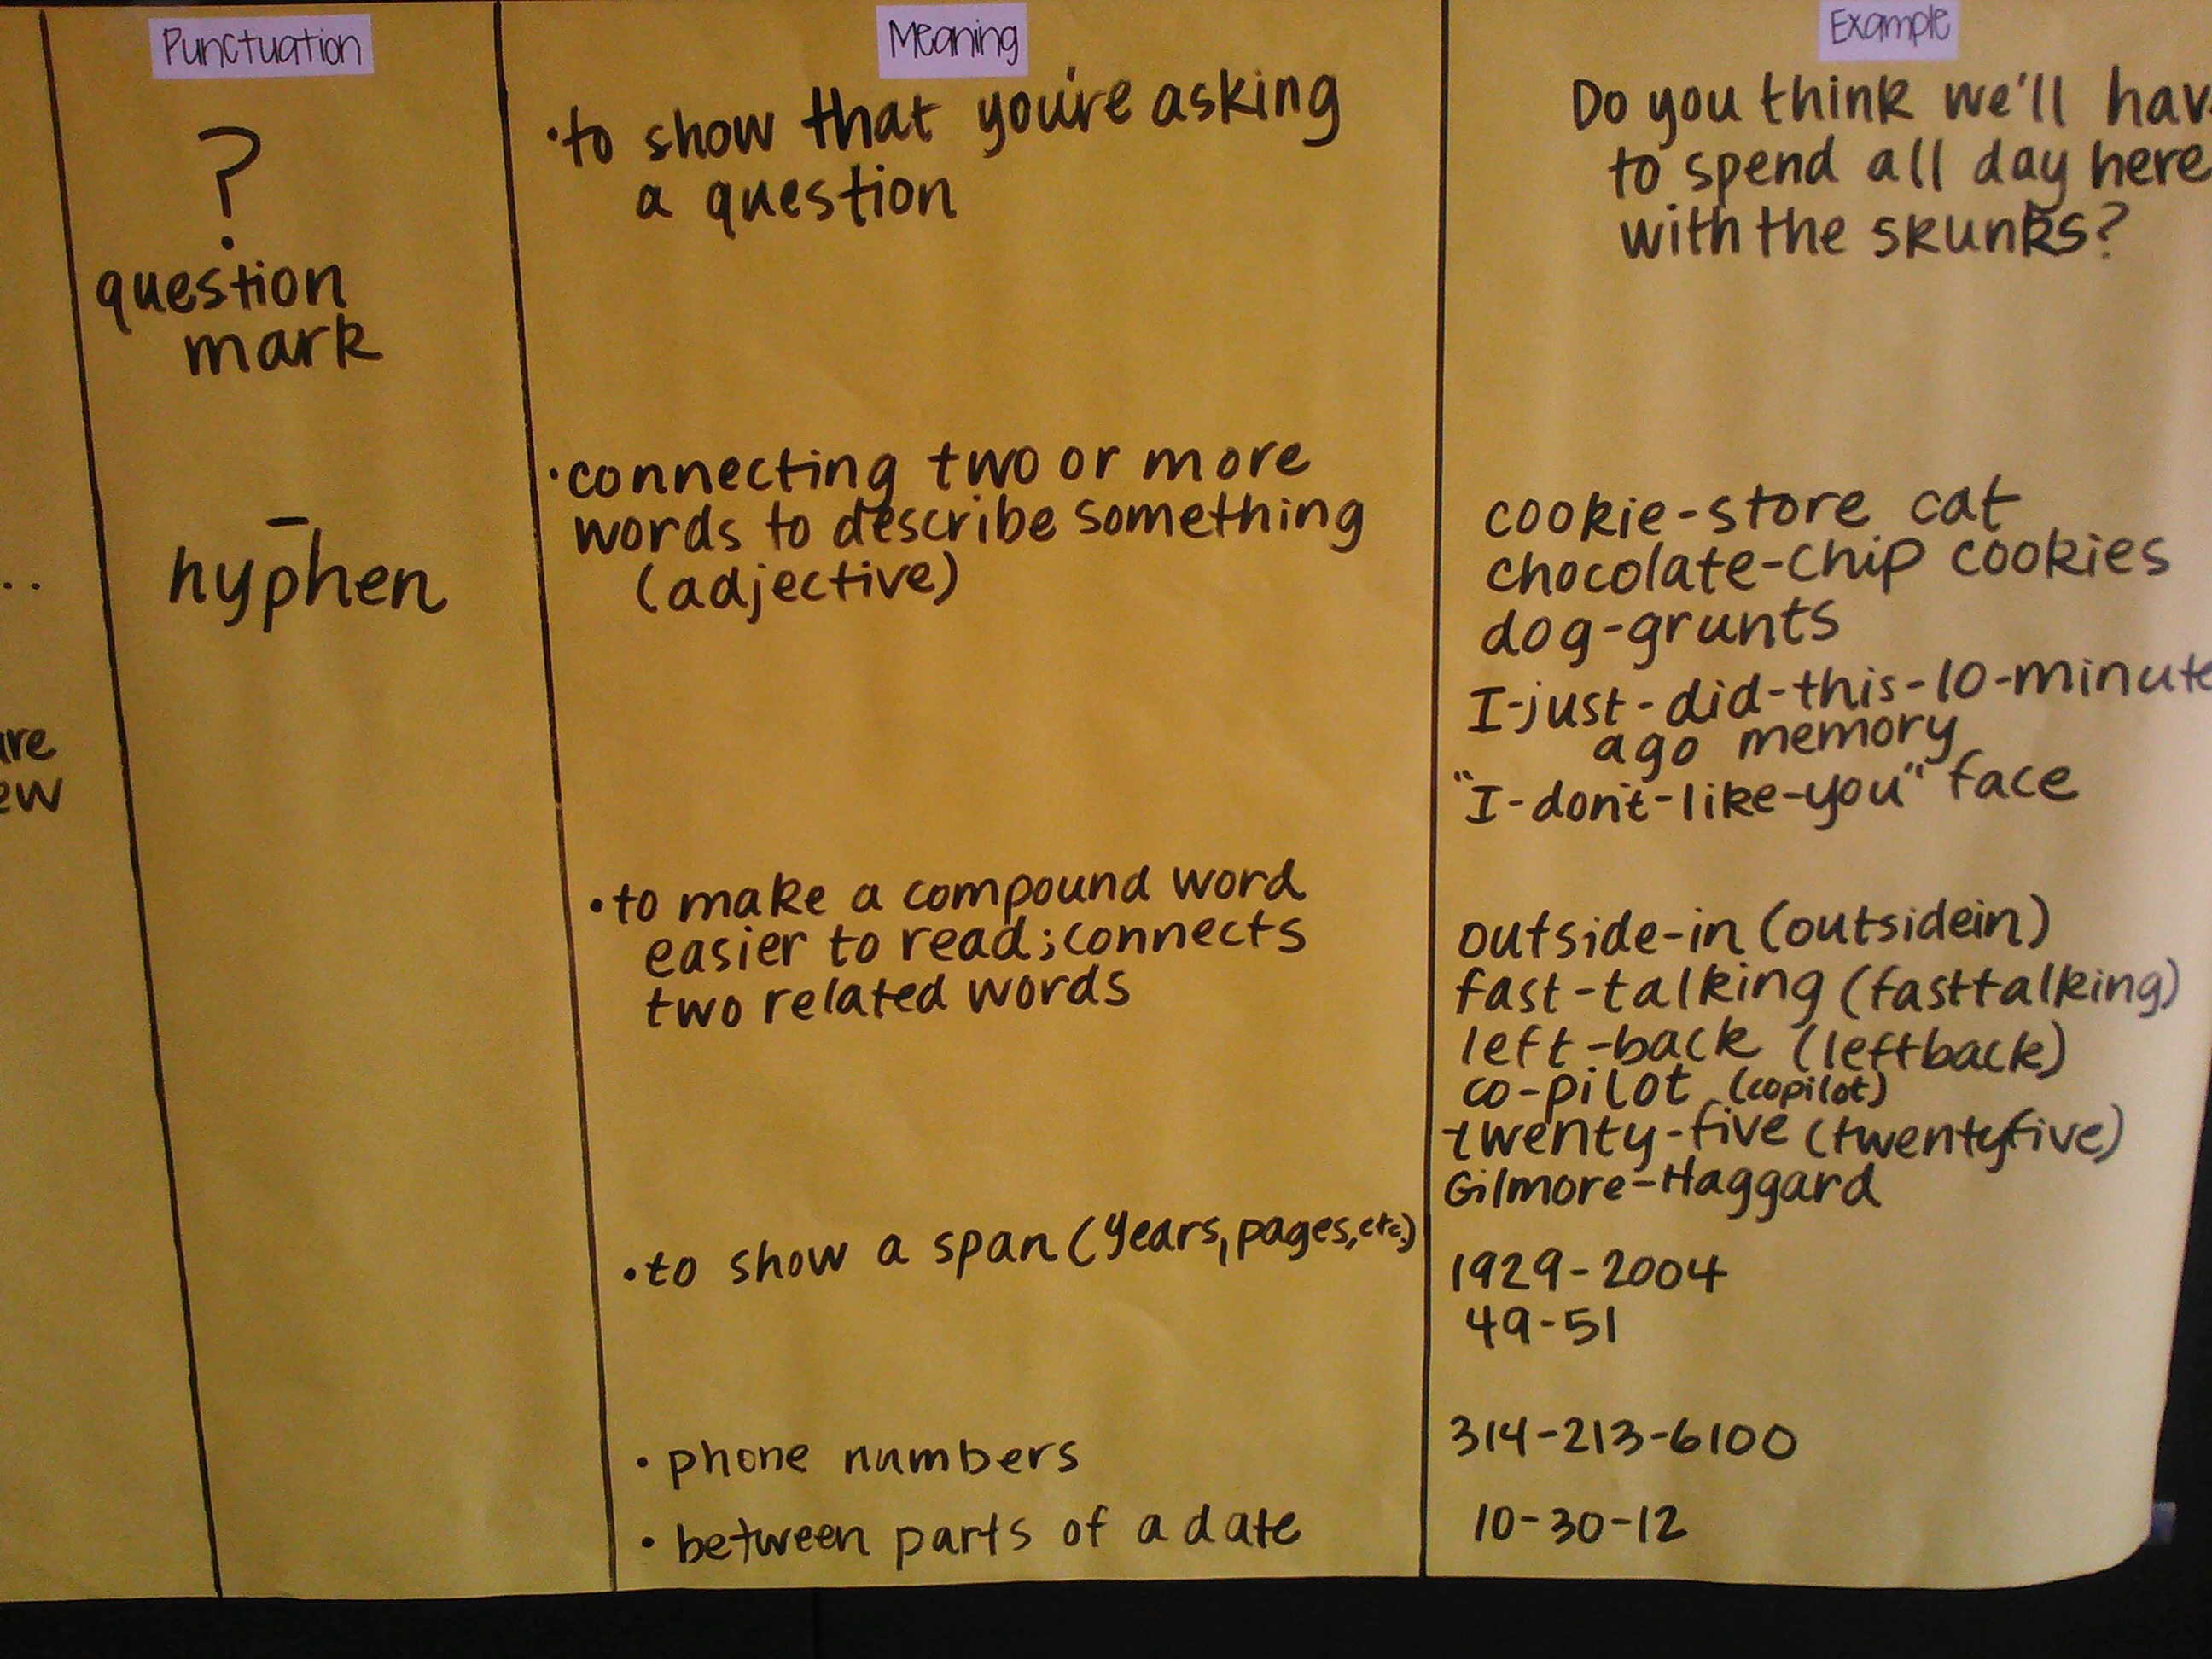 Punctuation
Meaning
Example
?
question
mark
·to show that you're asking
a question
Do you think we'll hav
to spend all day here
with the skunks?
-
hyphen
·connecting two or more
words to describe something
(adjective)
cookie-store cat
chocolate-chip cookies
dog-grunts
I-just-did-this-10-minute
ago memory
"I-don't-like-you" face
·to make a compound word
easier to read; connects
two related words
outside-in (outsidein)
fast-talking (fasttalking)
left-back (leftback)
co-pilot (copilot)
twenty-five (twentyfive)
Gilmore-Haggard
·to show a span (years, pages, etc.)
1929-2004
49-51
·phone numbers
314-213-6100
·between parts of a date
10-30-12
..
are
ew